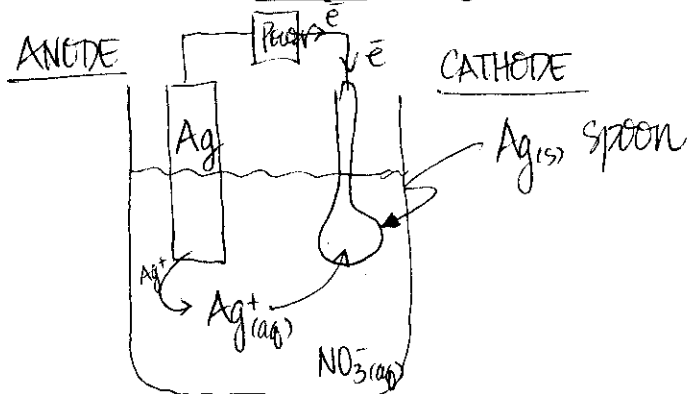 ē
ANODE
ē
CATHODE
Ag
Ag(s) spoon
Ag⁺
Ag⁺(aq)
NO₃⁻(aq)